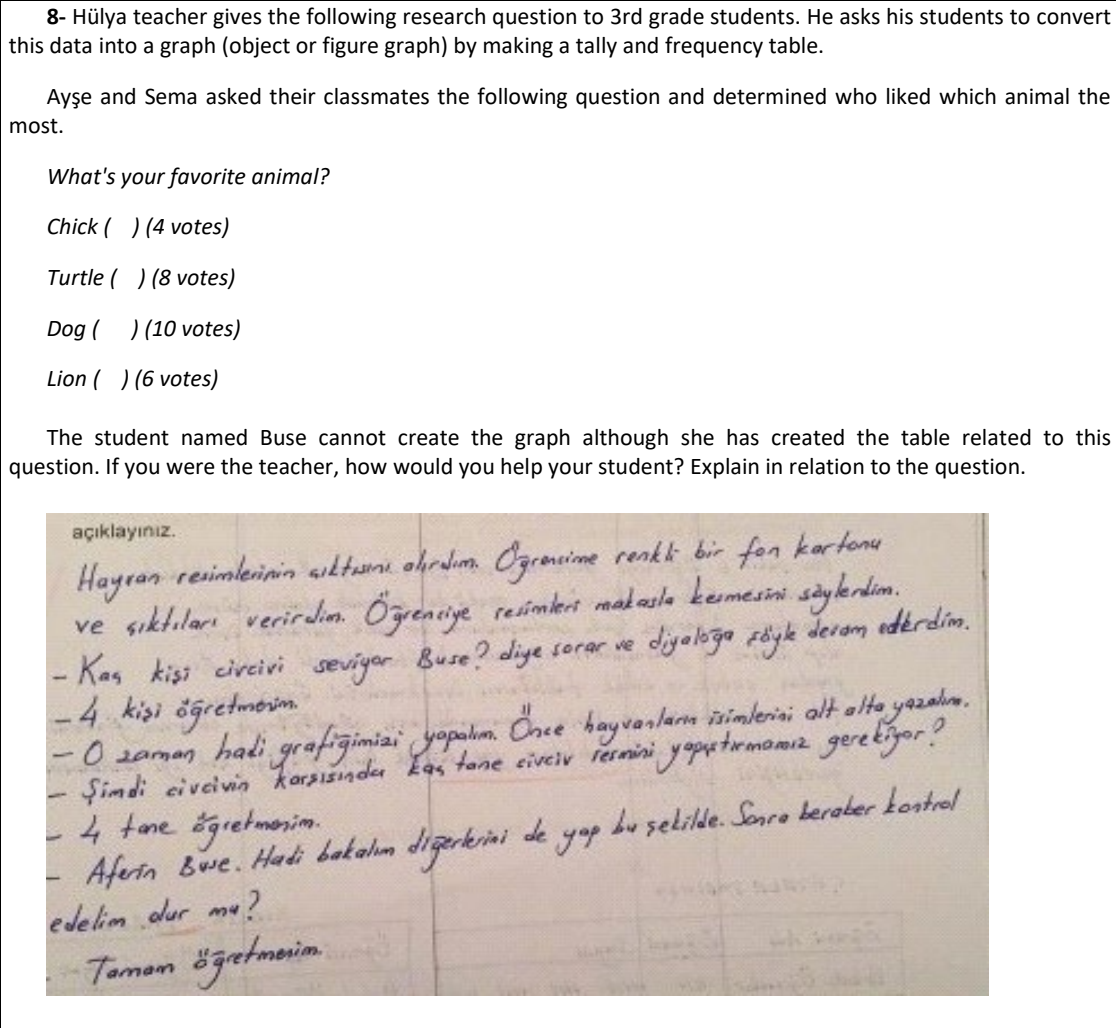 8- Hülya teacher gives the following research question to 3rd grade students. He asks his students to convert
this data into a graph (object or figure graph) by making a tally and frequency table.
Ayşe and Sema asked their classmates the following question and determined who liked which animal the
most.
What's your favorite animal?
Chick (   ) (4 votes)
Turtle (   ) (8 votes)
Dog (   ) (10 votes)
Lion (   ) (6 votes)
The student named Buse cannot create the graph although she has created the table related to this
question. If you were the teacher, how would you help your student? Explain in relation to the question.
açıklayınız.
Hayvan resimlerinin çıktısını alırdım. Öğrencime renkli bir fon kartonu
ve çıktıları verirdim. Öğrenciye resimleri makasla kesmesini söylerdim.
- Kaç kişi civcivi seviyor Buse? diye sorar ve diyaloğa şöyle devam ederdim.
- 4 kişi öğretmenim.
- O zaman hadi grafiğimizi yapalım. Önce hayvanların isimlerini alt alta yazalım.
- Şimdi civcivin karşısında kaç tane civciv resmini yapıştırmamız gerekiyor?
- 4 tane öğretmenim.
- Aferin Buse. Hadi bakalım diğerlerini de yap bu şekilde. Sonra beraber kontrol
edelim olur mu?
- Tamam öğretmenim.